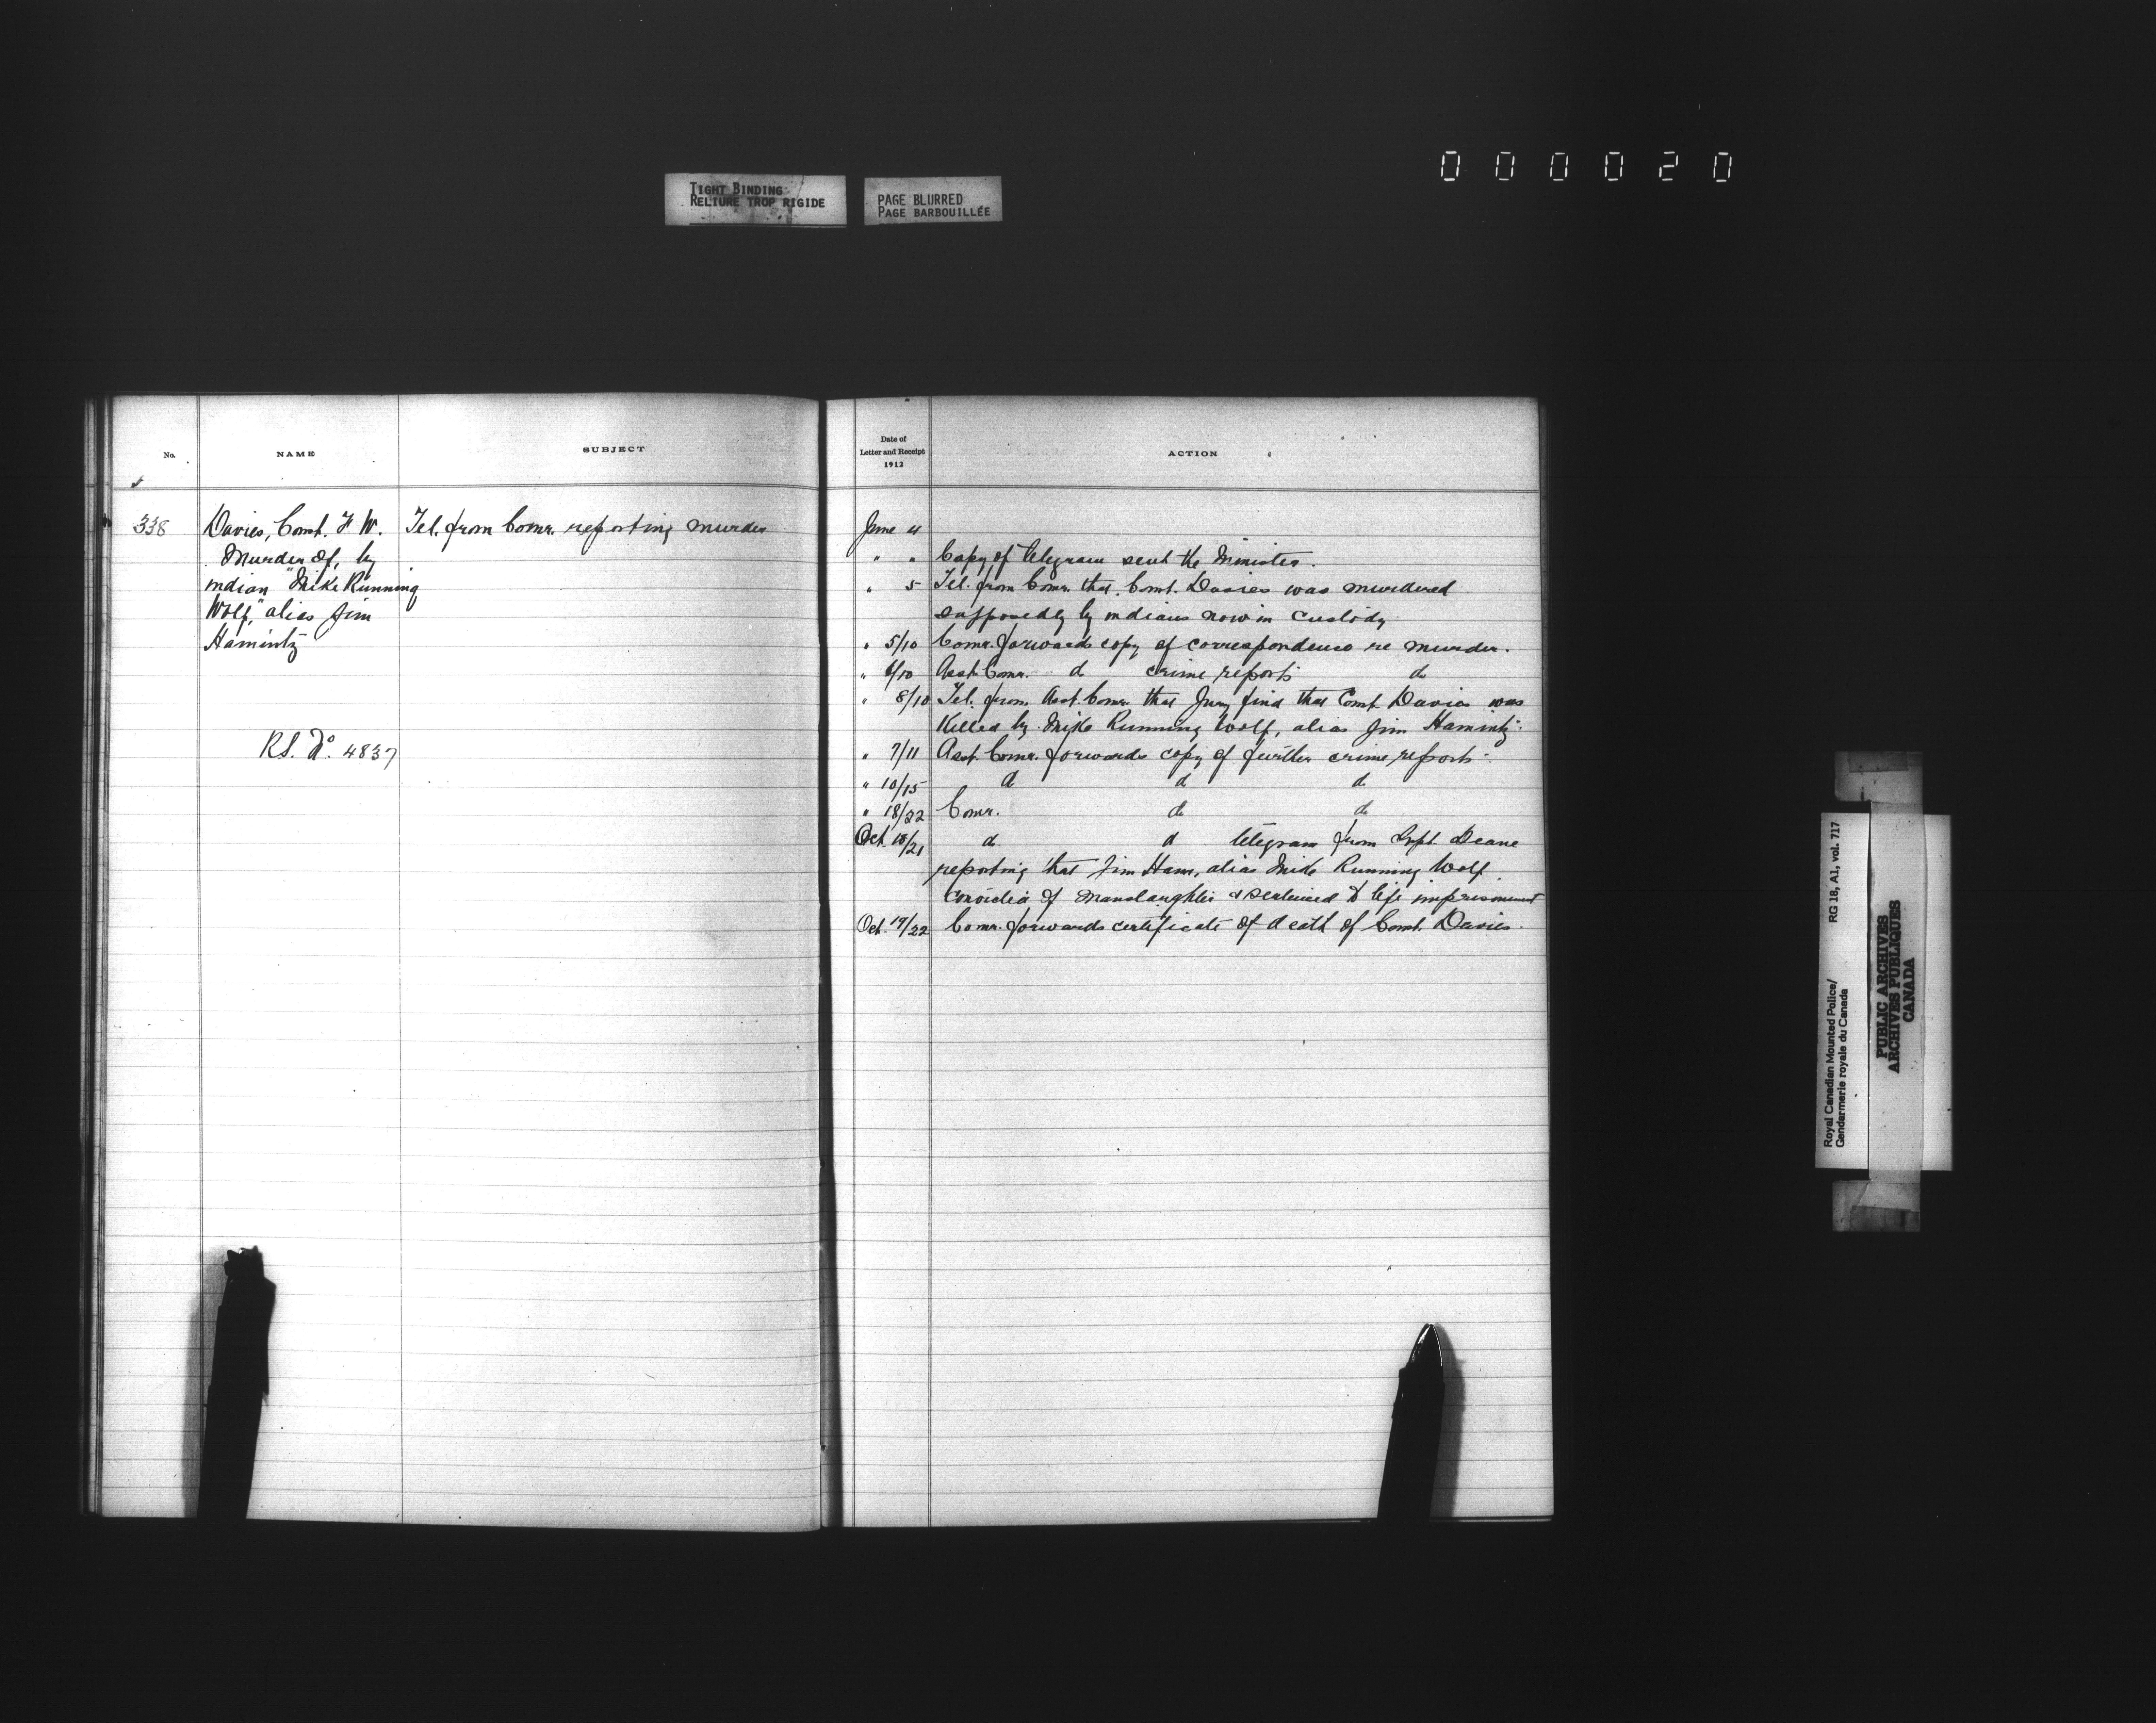 000020
TIGHT BINDING
RELIURE TROP RIGIDE
PAGE BLURRED
PAGE BARBOUILLÉE
No.
NAME
SUBJECT
338
Davies, Const. F. W.
Murder of, by
indian "Mike Running
Wolf," alias Jim
Hamintz
Tel. from Comr. reporting murder
R.S. No. 4837
Date of
Letter and Receipt
1912
ACTION
June 4
" " Copy of telegram sent the Minister.
" 5 Tel. from Comr. that Const. Davies was murdered
supposedly by indians now in custody
" 5/10 Comr. forwards copy of correspondence re murder.
" 6/10 Asst. Comr. do crime reports do
" 8/10 Tel. from Asst. Comr. that Jury find that Const. Davies was
killed by Mike Running Wolf, alias Jim Hamintz.
" 7/11 Asst. Comr. forwards copy of further crime reports.
" 10/15 do do do
" 18/22 Comr. do do
Oct. 18/21 do do telegram from Supt. Deane
reporting that Jim Ham, alias Mike Running Wolf
convicted of manslaughter & sentenced to life imprisonment
Oct. 19/22 Comr. forwards certificate of death of Const. Davies.
Royal Canadian Mounted Police/
Gendarmerie royale du Canada
RG 18, A1, vol. 717
PUBLIC ARCHIVES
ARCHIVES PUBLIQUES
CANADA